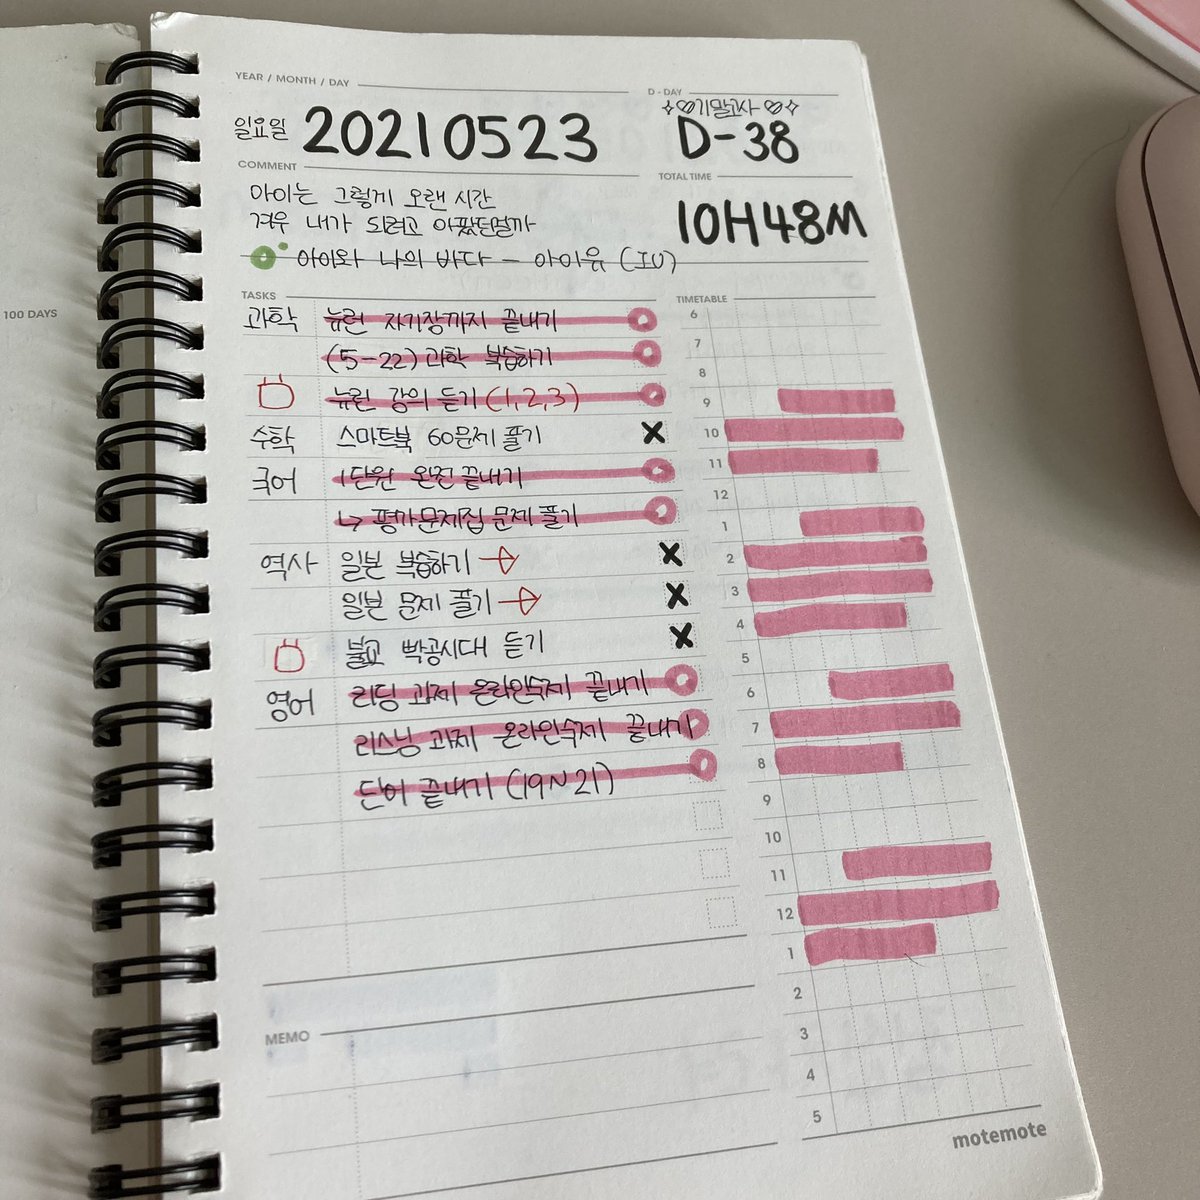 YEAR / MONTH / DAY
일요일 20210523
D - DAY
기말고사
D-38
COMMENT
아이는 그렇게 오랜 시간
겨우 내가 되려고 아팠던걸까
아이와 나의 바다 - 아이유 (IU)
TOTAL TIME
10H48M
100 DAYS
TASKS
과학 뉴런 자기장까지 끝내기
(5-22) 과학 복습하기
뉴런 강의 듣기 (1,2,3)
수학 스마트북 60문제 풀기
국어 1단원 완전 끝내기
↳ 평가문제집 문제 풀기
역사 일본 복습하기
일본 문제 풀기
불교 빡공시대 듣기
영어 리딩 과제 온라인숙제 끝내기
리스닝 과제 온라인숙제 끝내기
단어 끝내기 (19~21)
TIMETABLE
6
7
8
9
10
11
12
1
2
3
4
5
6
7
8
9
10
11
12
1
2
3
4
5
MEMO
motemote